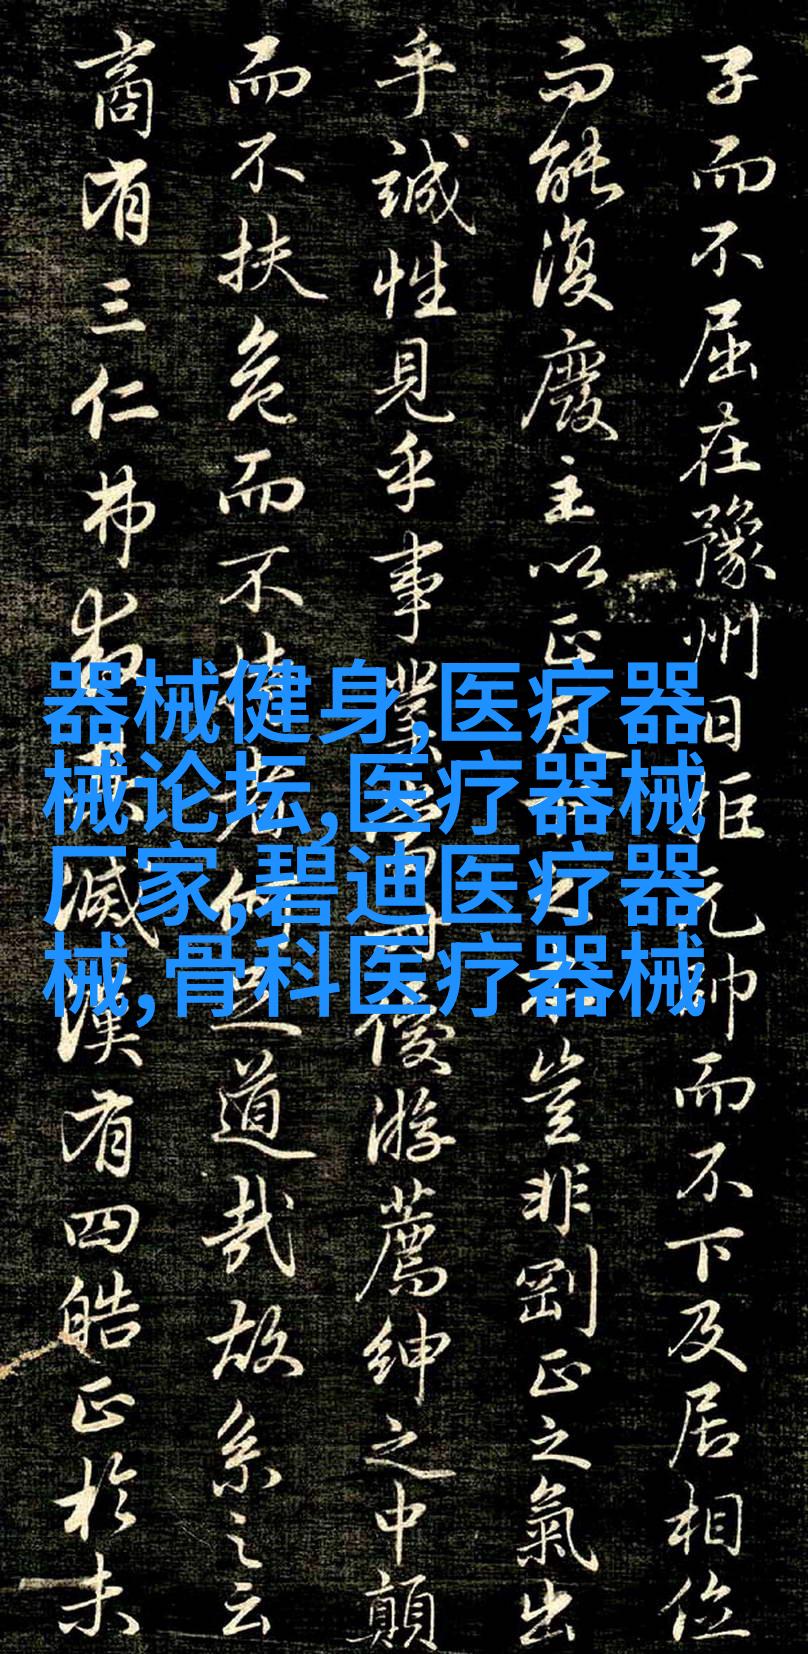 子而不屈在豫州日拒元帥而不下及居相位
而能復廢主以正天豈非剛正之氣出
乎誠性見乎事業優游薦紳之中顛
而不扶危而不持者何足道哉故系之云
商有三仁弗救滅漢有四皓正於未
器械健身,医疗器
械论坛,医疗器械
厂家,碧迪医疗器
械,骨科医疗器械